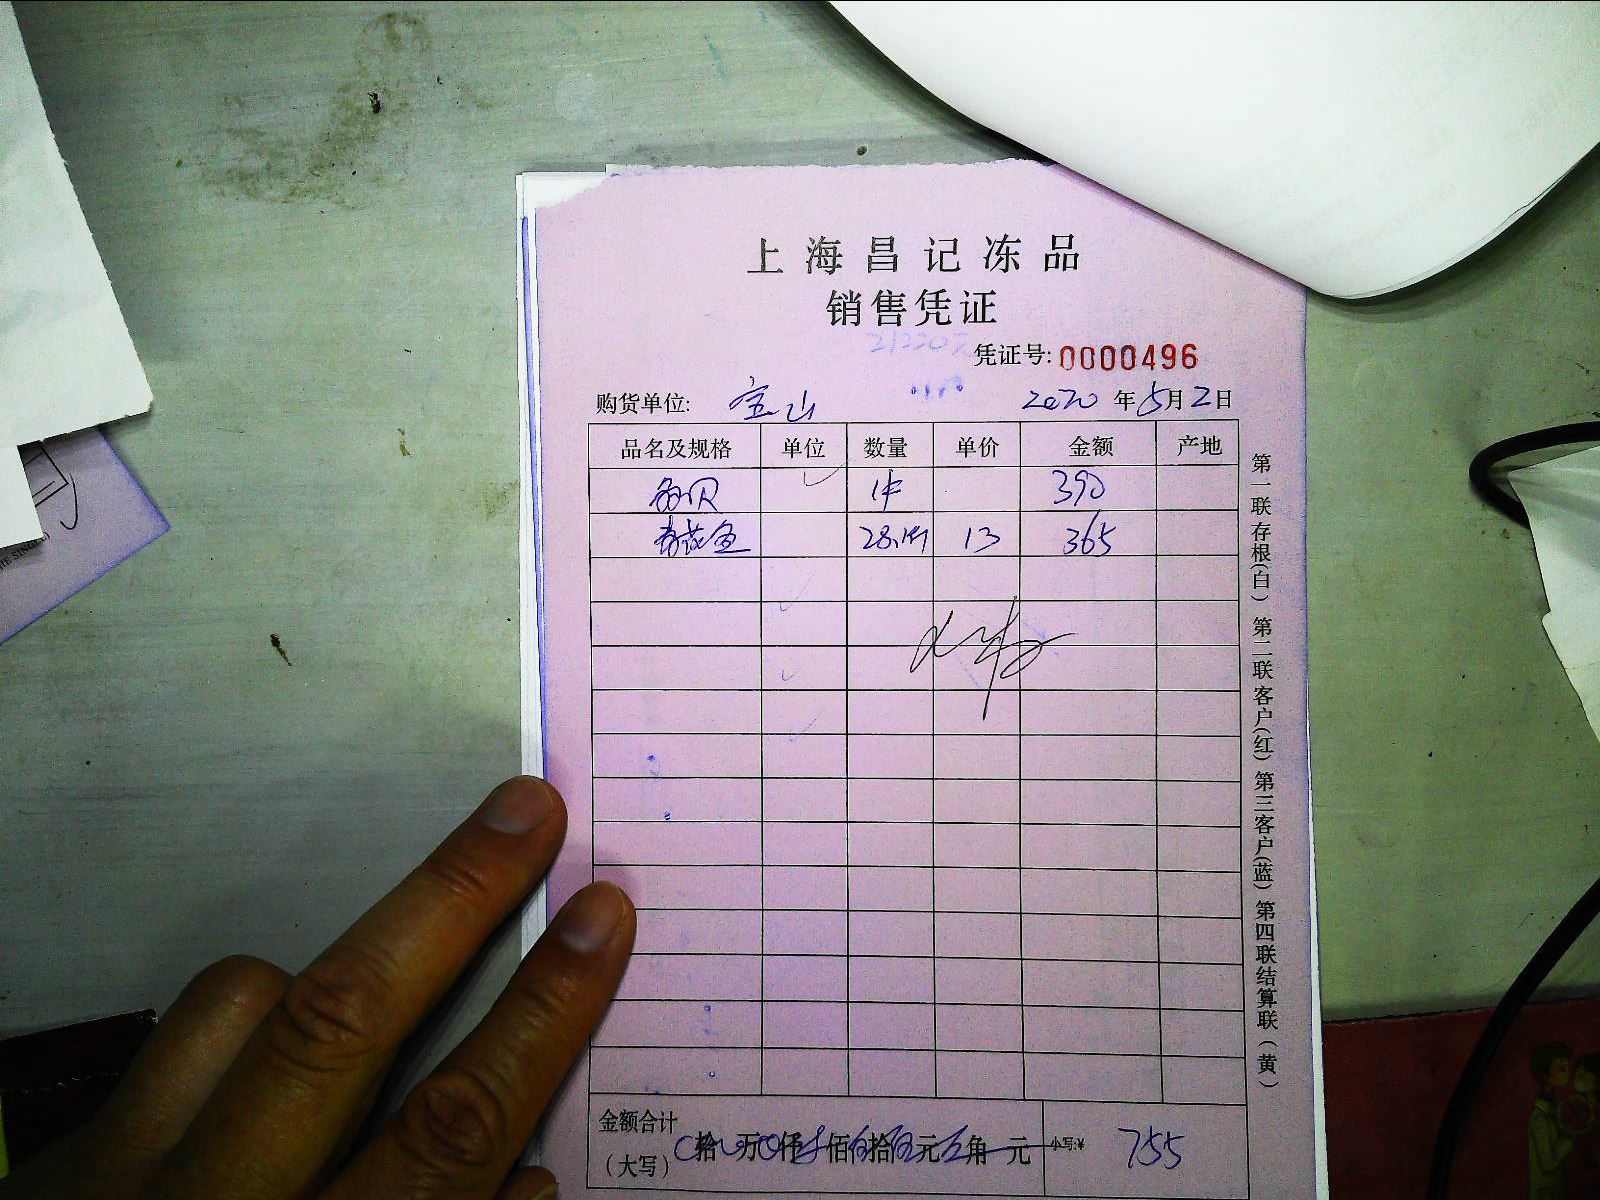 上海昌记冻品
销售凭证
凭证号: 0000496
购货单位: 宝山 2020 年 5月 2日
品名及规格 单位 数量 单价 金额 产地
贝 1件 390
青花鱼 28.1斤 13 365
金额合计
(大写) 拾 万 仟 佰 拾 元 角 元 小写:¥ 755
第一联存根(白) 第二联客户(红) 第三客户(蓝) 第四联结算联(黄)